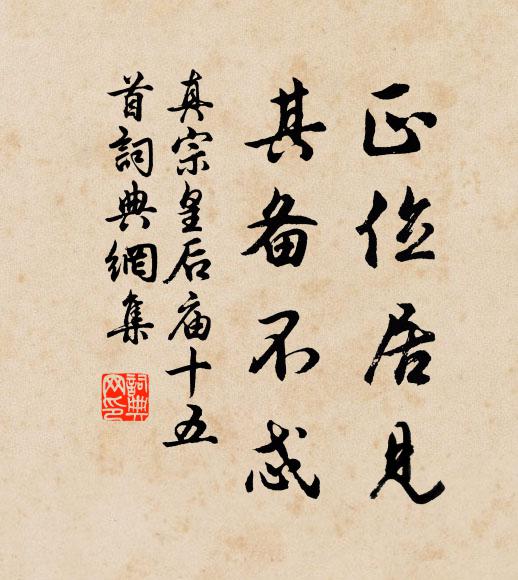 正位居見
其备不忒
真宗皇后庙十五
首詞典網集
詞典
网印